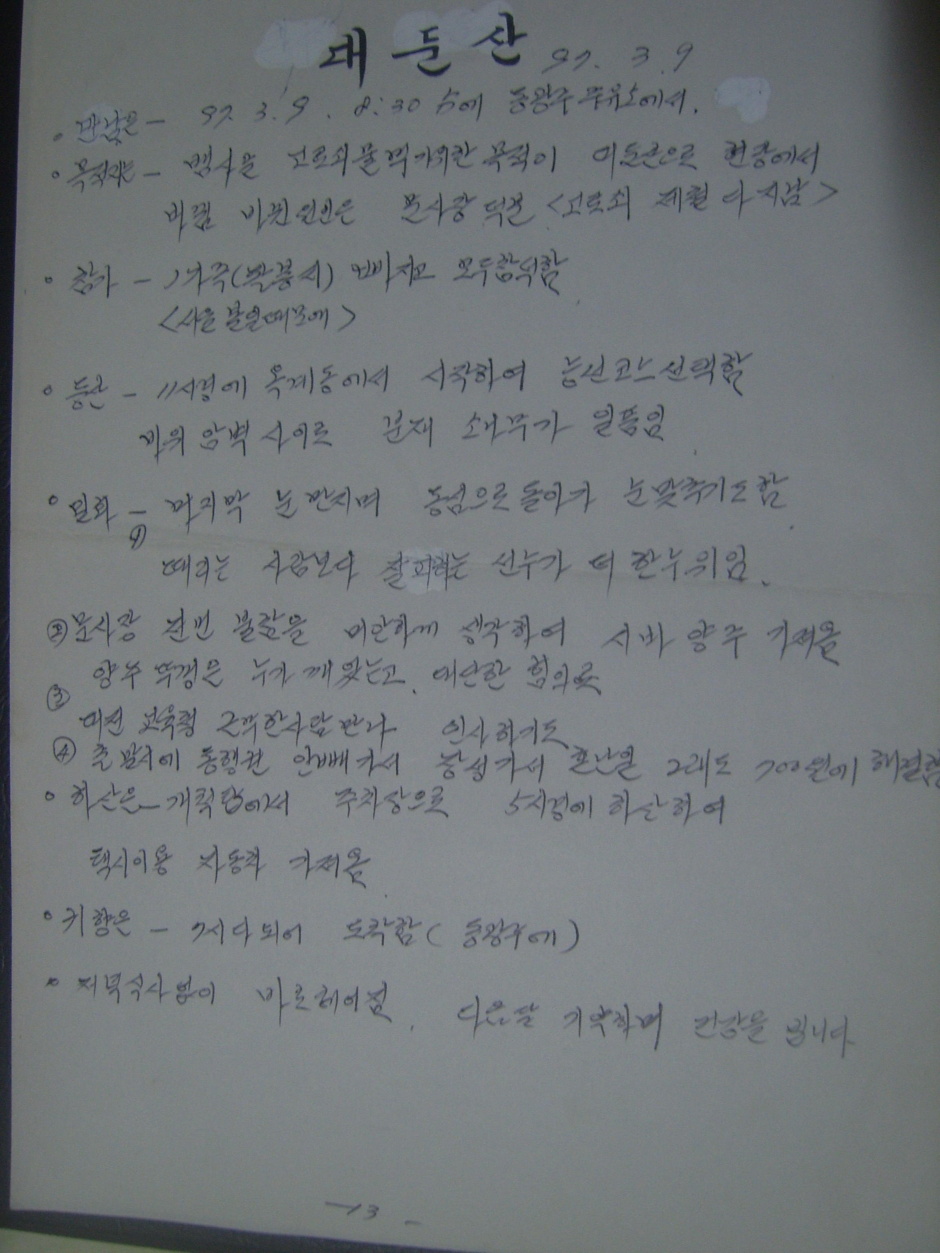 대둔산 97. 3. 9
• 만남은 - 97. 3. 9. 8:30 分에 동광주 주유소에서.
• 목적산 - 백사을 고로쇠물먹기위한 목적이 이둔산으로 현장에서
바뀜 바뀐원인은 문사장 덕분 <고로쇠 제철 다 지남>
• 참가 - 1가족(박봉서) 만빠지고 모두참석함
<서울 볼일때문에>
• 등산 - 11시경에 옥계동에서 시작하여 능선코스 선택함
바위 암벽 사이로 분재 소나무가 일품임
• 일화 - 마지막 눈 만지며 동심으로 돌아가 눈맞추기도 함.
① 때리는 사람보다 잘피하는 선수가 더 한수위임.
② 문사장 전번 불참을 미안하게 생각하여 시바 양주 가져옴
양주 뚜껑은 누가 깨 왔는고. 대단한 힘의
③ 대전 교육청 근무한사람 만나 인사하기도
④ 출발시에 통행권 안빼가서 장성가서 혼난일 그래도 700원에 해결함
• 하산은 - 개척탑에서 주차장으로 5시경에 하산하여
택시이용 자동차 가져옴.
• 귀향은 - 7시다되어 도착함 (동광주에)
• 저녁식사없이 바로헤어짐. 다음달 기약하며 건강을 빕니다
-13-